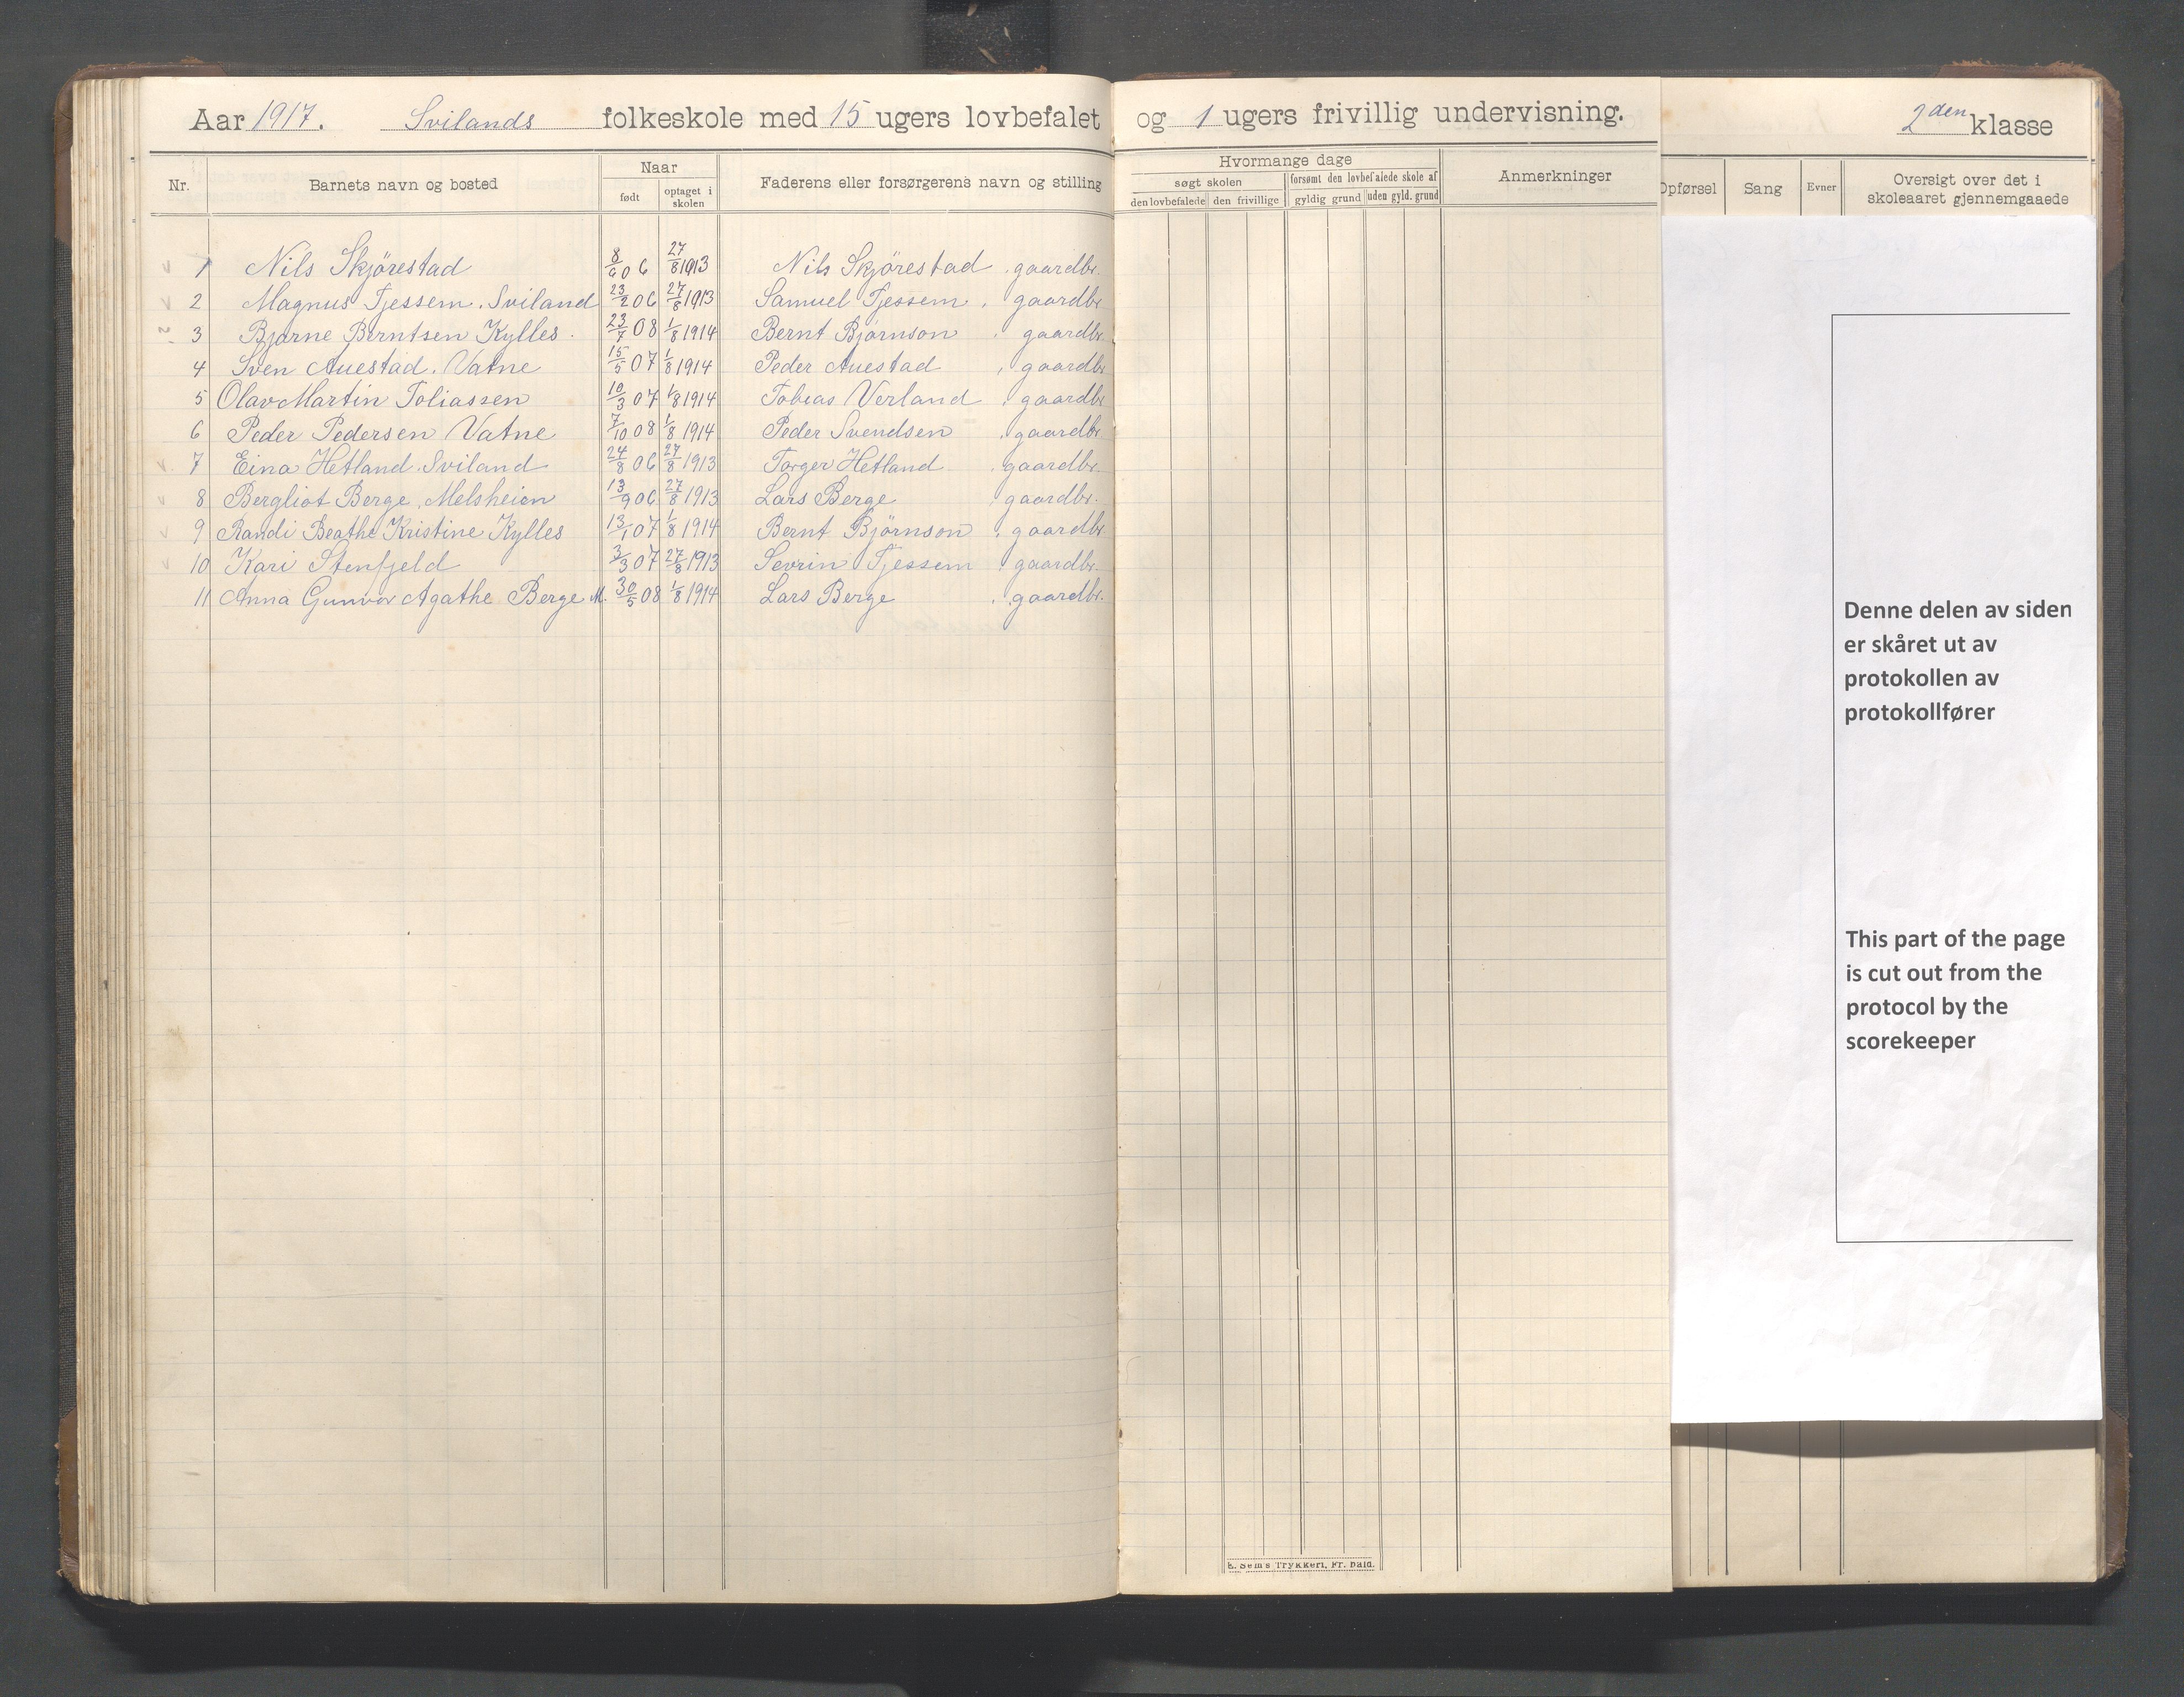 Aar 1917. Svilands folkeskole med 15 ugers lovbefalet og 1 ugers frivillig undervisning. 2den klasse
Nr. Barnets navn og bosted Naar Faderens eller forsørgerens navn og stilling Hvormange dage Anmerkninger Opførsel Sang Evner Oversigt over det i skoleaaret gjennemgaaede
født optaget i skolen søgt skolen forsømt den lovbefalede skole af
den lovbefalede den frivillige gyldig grund uden gyld. grund
1 Nils Skjørestad 8/6 06 27/8 1913 Nils Skjørestad . gaardbr.
2 Magnus Tjessem . Sviland 23/2 06 27/8 1913 Samuel Tjessem . gaardbr.
3 Bjarne Berntsen Kylles . 23/7 08 1/8 1914 Bernt Bjørnson . gaardbr.
4 Sven Auestad . Vatne 15/5 07 1/8 1914 Peder Auestad , gaardbr
5 Olav Martin Toliassen 10/3 07 1/8 1914 Tobias Verland . gaardbr
6 Peder Pedersen Vatne 7/10 08 1/8 1914 Peder Svendsen . gaardbr.
7 Eina Hetland . Sviland 24/8 06 27/8 1913 Torger Hetland . gaardbr.
8 Bergliot Berge , Melsheien 13/9 06 27/8 1913 Lars Berge . gaardbr.
9 Randi Beathe Kristine Kylles 13/1 07 1/8 1914 Bernt Bjørnson . gaardbr
10 Kari Stenfjeld 3/3 07 27/8 1913 Sevrin Tjessem . gaardbr.
11 Anna Gunvor Agathe Berge M. 30/5 08 1/8 1914 Lars Berge . gaardbr.
Denne delen av siden
er skåret ut av
protokollen av
protokollfører
This part of the page
is cut out from the
protocol by the
scorekeeper
E. Sem's Trykkeri, Fr.hald.